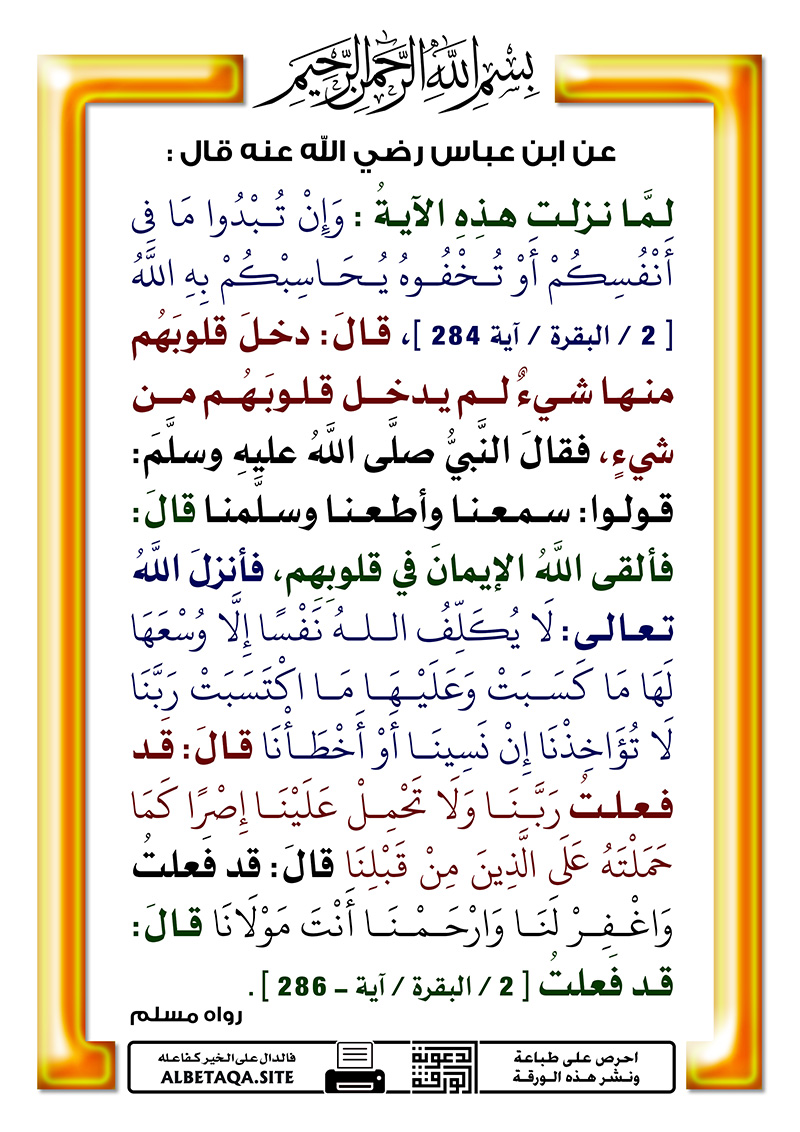 بِسْمِ اللَّهِ الرَّحْمَنِ الرَّحِيمِ
عن ابن عباس رضي الله عنه قال :
لـمَّـا نـزلـت هـذِهِ الآيـةُ : وَإِنْ تُـبْدُوا مَا فِي
أَنْفُسِكُمْ أَوْ تُـخْفُـوهُ يُـحَـاسِبْكُمْ بِهِ اللَّهُ
[ 2 / البقرة / آية 284 ]، قـالَ: دخـلَ قلوبَهُم
منـهـا شـيءٌ لـم يـدخـل قـلـوبَـهُـم مـن
شيءٍ، فقالَ النَّبيُّ صلَّى اللَّهُ عليهِ وسلَّمَ:
قـولـوا: سـمـعـنـا وأطـعـنـا وسـلَّمنـا قالَ:
فألقى اللَّهُ الإيمانَ في قلوبِهِم، فأنزلَ اللَّهُ
تـعـالـى: لَا يُكَلِّفُ الـلـهُ نَفْسًا إِلَّا وُسْعَهَا
لَهَا مَا كَسَـبَتْ وَعَلَيْـهَـا مَـا اكْتَسَبَتْ رَبَّنَا
لَا تُؤَاخِذْنَا إِنْ نَسِينَـا أَوْ أَخْطَـأْنَا قـالَ: قَـد
فـعـلـتُ رَبَّـنَـا وَلَا تَحْمِـلْ عَلَيْنَـا إِصْرًا كَمَا
حَمَلْتَهُ عَلَى الَّذِينَ مِنْ قَبْلِنَا قالَ: قد فَعلتُ
وَاغْـفِـرْ لَنَـا وَارْحَـمْـنَـا أَنْتَ مَوْلَانَا قـالَ:
قـد فَعلتُ [ 2 / البقرة / آية – 286 ] .
رواه مسلم
احرص على طباعة
ونـشر هذه الـورقـة
الدعوية
الورقة
فالدال على الخير كفاعله
ALBETAQA.SITE